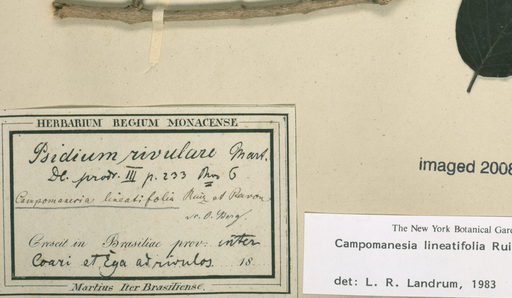 HERBARIUM REGIUM MONACENSE
Psidium rivulare Mart.
DC. prodr. III p. 233 No 6
Campomanesia lineatifolia Ruiz et Pavon
O. Berg.
Crescit in Brasiliae prov: inter
Coari et Ega ad rivulos 18
Martius Iter Brasiliense.
imaged 2008
The New York Botanical Gard
Campomanesia lineatifolia Rui
det: L. R. Landrum, 1983